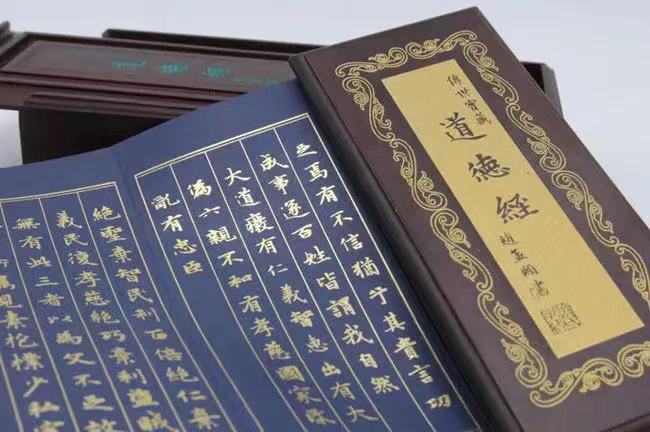 傳世寶藏
道徳經
趙孟頫書
之焉有不信猶乎其貴言功
成事遂百姓皆謂我自然
大道癈有仁義智惠出有大
偽六親不和有孝慈國家昬
亂有忠臣
絕聖棄智民利百倍絕仁棄
義民復孝慈絕巧棄利盜賊
無有此三者以為文不足故
素抱樸少私